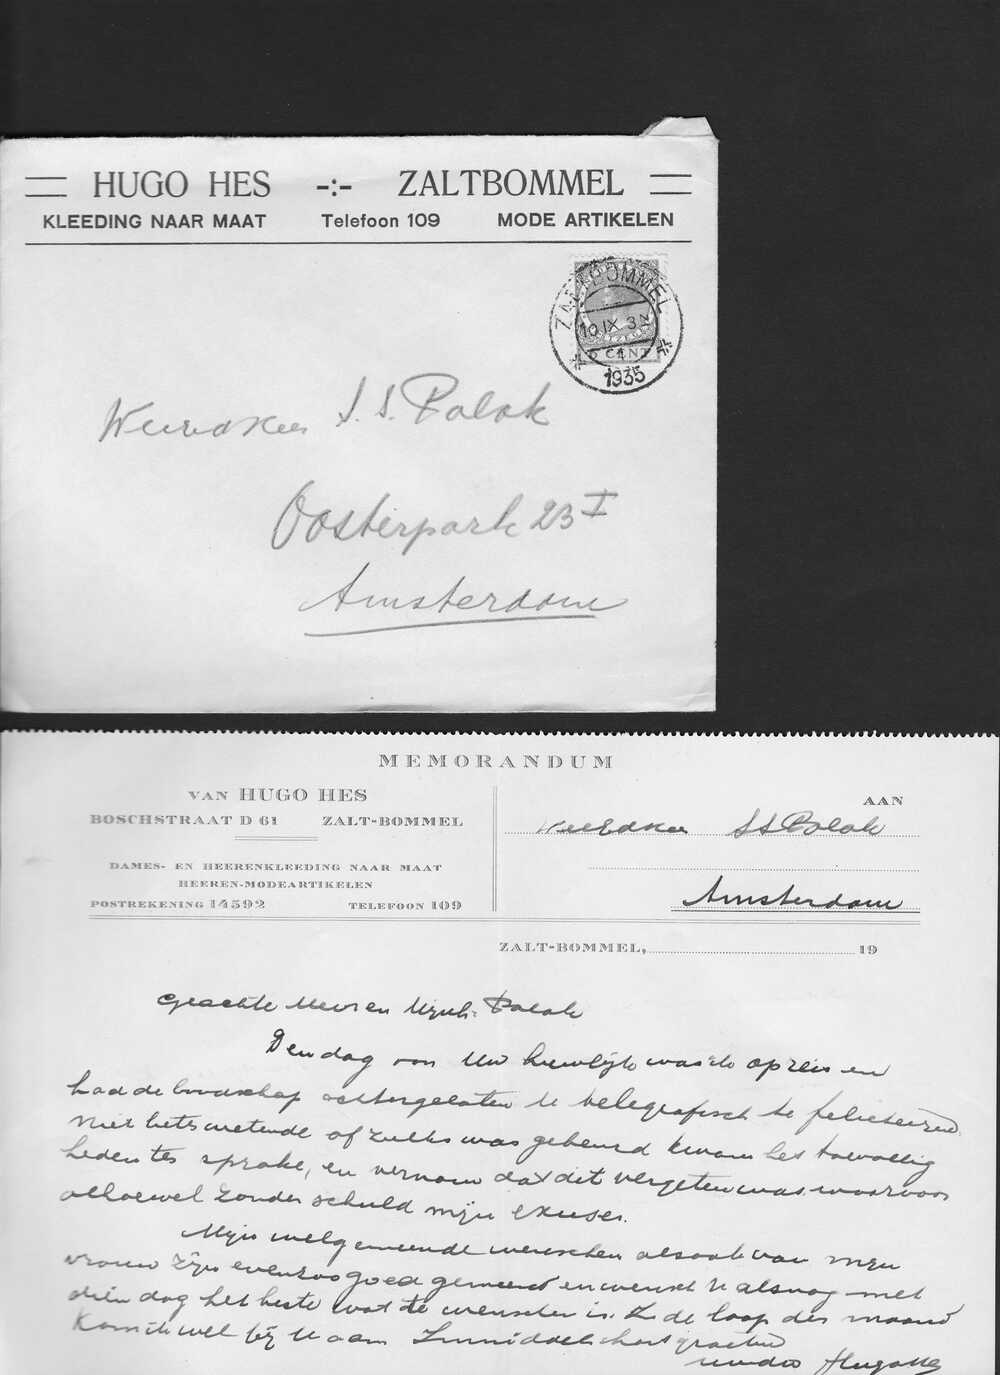 HUGO HES -:- ZALTBOMMEL
KLEEDING NAAR MAAT Telefoon 109 MODE ARTIKELEN
ZALTBOMMEL
10 IX 3
CENT
1935
Weledheer S. S. Polak
Oosterpark 23 I
Amsterdam
MEMORANDUM
VAN HUGO HES
BOSCHSTRAAT D 61 ZALT-BOMMEL
DAMES- EN HEERENKLEEDING NAAR MAAT
HEEREN-MODEARTIKELEN
POSTREKENING 14592 TELEFOON 109
AAN
Weledheer SS Polak
Amsterdam
ZALT-BOMMEL, 19
Geachte Mevr en Mijnh. Polak
Den dag van Uw huwlijk was ik op reis en
had de boodschap achtergelaten U telegrafisch te feliciteeren
Niet beter wetende of zulks was gebeurd kwam het toevallig
heden ter sprake, en vernam dat dit vergeten was, waarvoor
alhoewel zonder schuld mijn excuses.
Mijn welgemeende wenschen alsook van mijn
vrouw zijn evenzoo goed gemeend en wensch U alsnog met
dien dag het beste wat te wenschen is. In de loop der maand
Kom ik wel bij U aan Inmiddels hart groeten
Hugo Hes